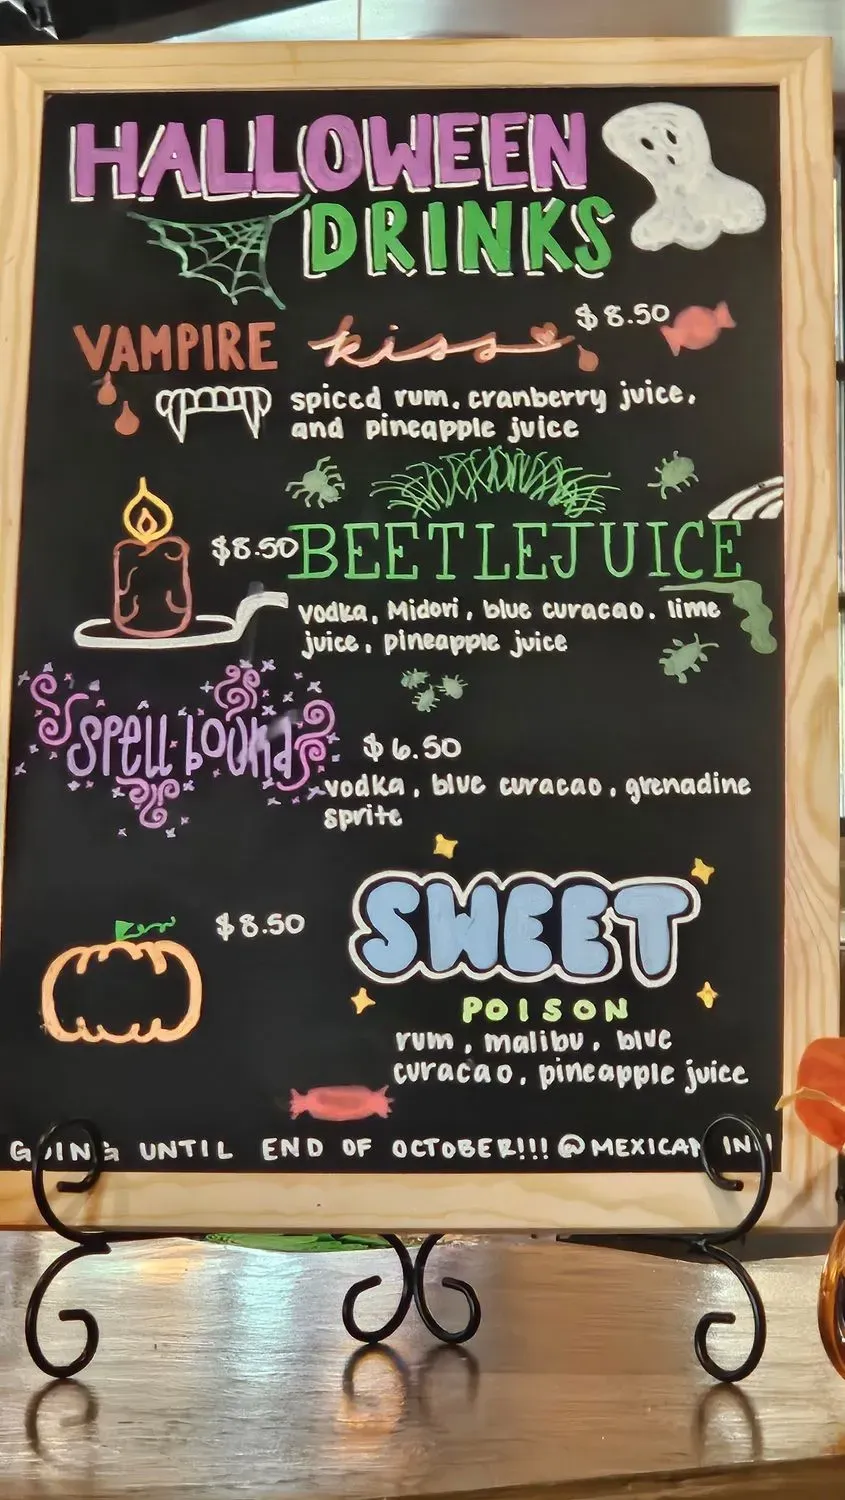 HALLOWEEN
DRINKS
VAMPIRE kiss $8.50
spiced rum, cranberry juice,
and pineapple juice
$8.50 BEETLEJUICE
vodka, Midori, blue curacao, lime
juice, pineapple juice
spell bound
$6.50
vodka, blue curacao, grenadine
sprite
$8.50 SWEET
POISON
rum, malibu, blue
curacao, pineapple juice
GOING UNTIL END OF OCTOBER!!! @MEXICAN INN